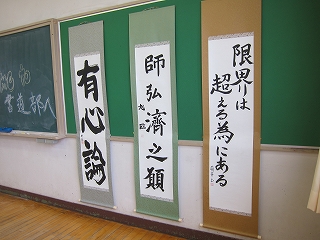 書道部へ
有心論
師弘濟之願
限界は
超える為にある